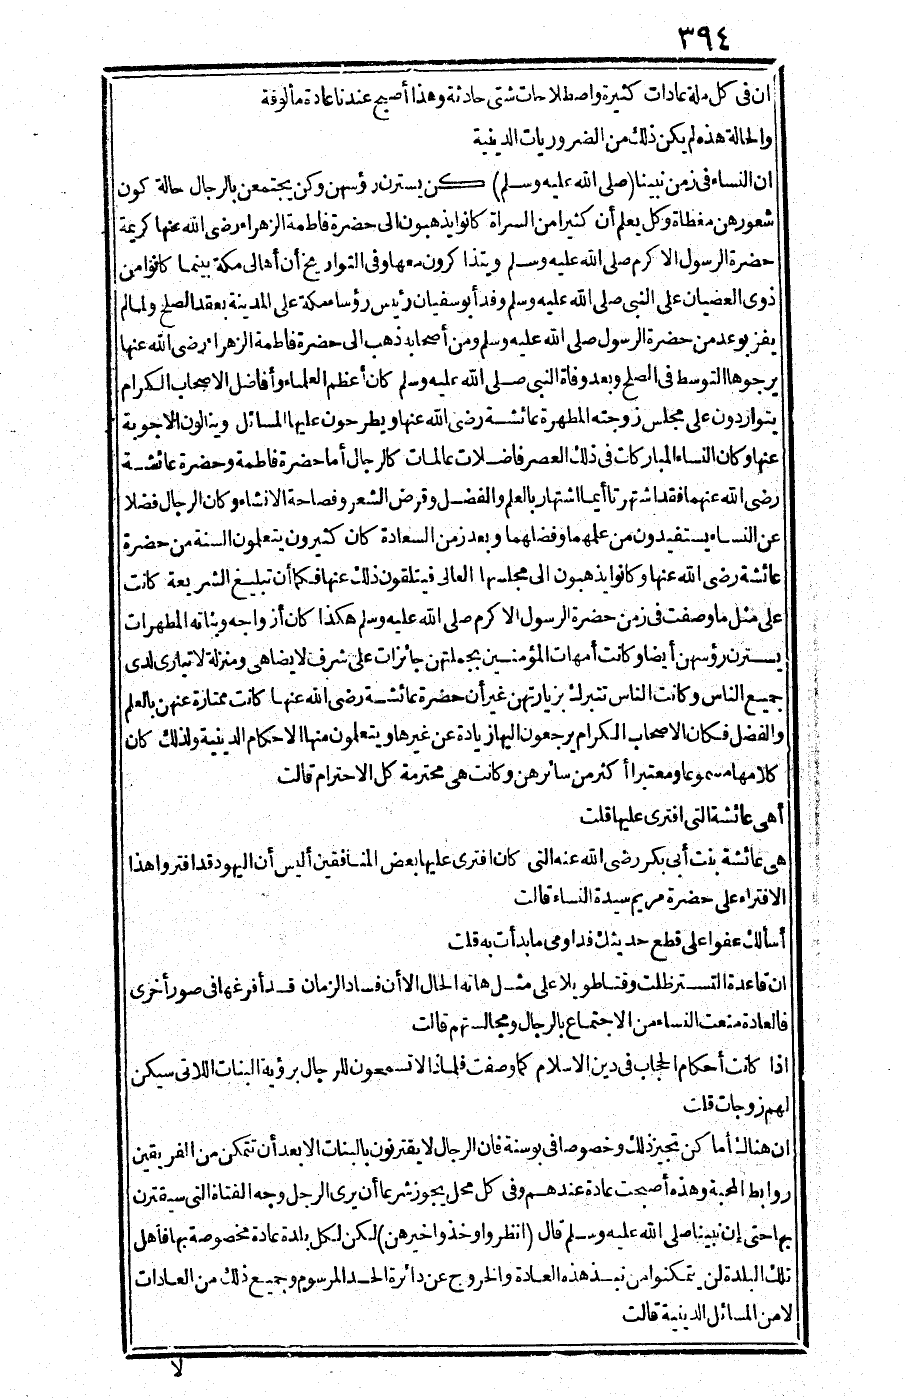 ٣٩٤
ان فى كل ملة عادات كثيرة واصطلاحات شتى حادثة وهذا أصبح عندنا عادة مألوفة
والحالة هذه لم يكن ذلك من الضروريات الدينية
ان النساء فى زمن نبينا (صلى الله عليه وسلم) كن يسترن رؤسهن وكن يجتمعن بالرجال حالة كون
شعورهن مغطاة وكل يعلم أن كثيرا من السراة كانوا يذهبون الى حضرة فاطمة الزهراء رضى الله عنها كريمة
حضرة الرسول الاكرم صلى الله عليه وسلم ويتذاكرون معها وفى التواريخ أن أهالى مكة بينما كانوا من
ذوى العصيان على النبى صلى الله عليه وسلم وفد أبو سفيان رئيس رؤساء مكة على المدينة بعقد الصلح ولما لم
يفز بوعد من حضرة الرسول صلى الله عليه وسلم ومن أصحابه ذهب الى حضرة فاطمة الزهراء رضى الله عنها
يرجوها التوسط فى الصلح وبعد وفاة النبى صلى الله عليه وسلم كان أعظم العلماء وأفاضل الاصحاب الكرام
يتواردون على مجلس زوجته المطهرة عائشة رضى الله عنها ويطرحون عليها المسائل وينالون الاجوبة
عنها وكان النساء المباركات فى ذلك العصر فاضلات عالمات كالرجال أما حضرة فاطمة وحضرة عائشة
رضى الله عنهما فقد اشتهرتا أيما اشتهار بالعلم والفضل وقرض الشعر وفصاحة الانشاء وكان الرجال فضلا
عن النساء يستفيدون من علمهما وفضلهما وبعد زمن السعادة كان كثيرون يتعلمون السنة من حضرة
عائشة رضى الله عنها وكانوا يذهبون الى مجلسها العالى فيتلقون ذلك عنها فكما أن تبليغ الشريعة كانت
على مثل ما وصفت فى زمن حضرة الرسول الاكرم صلى الله عليه وسلم هكذا كان أزواجه وبناته المطهرات
يسترن رؤسهن أيضا وكانت أمهات المؤمنين بجملتهن حائزات على شرف لا يضاهى ومنزلة لا تبارى لدى
جميع الناس وكانت الناس تتبرك بزيارتهن غير أن حضرة عائشة رضى الله عنها كانت ممتازة عنهن بالعلم
والفضل فكان الاصحاب الكرام يرجعون اليها زيادة عن غيرها ويتعلمون منها الاحكام الدينية ولذلك كان
كلامها مسموعا ومعتبرا أكثر من سائرهن وكانت هى محترمة كل الاحترام قالت
أهى عائشة التى افترى عليها قلت
هى عائشة بنت أبى بكر رضى الله عنه التى كان افترى عليها بعض المنافقين أليس أن اليهود قد افتروا هذا
الافتراء على حضرة مريم سيدة النساء قالت
أسألك عفوا على قطع حديثك فداومى ما بدأت به قلت
ان قاعدة التستر ظلت وقتا طويلا على مثل هاته الحال الا أن فساد الزمان قد أفرغها فى صور أخرى
فالعادة منعت النساء من الاجتماع بالرجال ومجالستهم قالت
اذا كانت أحكام الحجاب فى دين الاسلام كما وصفت فلماذا لا تسمعون للرجال برؤية البنات اللاتى سيكن
لهم زوجات قلت
ان هناك أماكن تجيز ذلك وخصوصا فى بوسنة فان الرجال لا يقترنون بالبنات الا بعد أن تتمكن من الفريقين
روابط المحبة وهذه أصبحت عادة عندهم وفى كل محل يجوز شرعا أن يرى الرجل وجه الفتاة التى سيقترن
بها حتى إن نبينا صلى الله عليه وسلم قال (انظروا وخذوا خيرهن) لكن لكل بلدة عادة مخصوصة بها فأهل
تلك البلدة لن يتمكنوا من نبذ هذه العادة والخروج عن دائرة الحد المرسوم وجميع ذلك من العادات
لا من المسائل الدينية قالت
لا